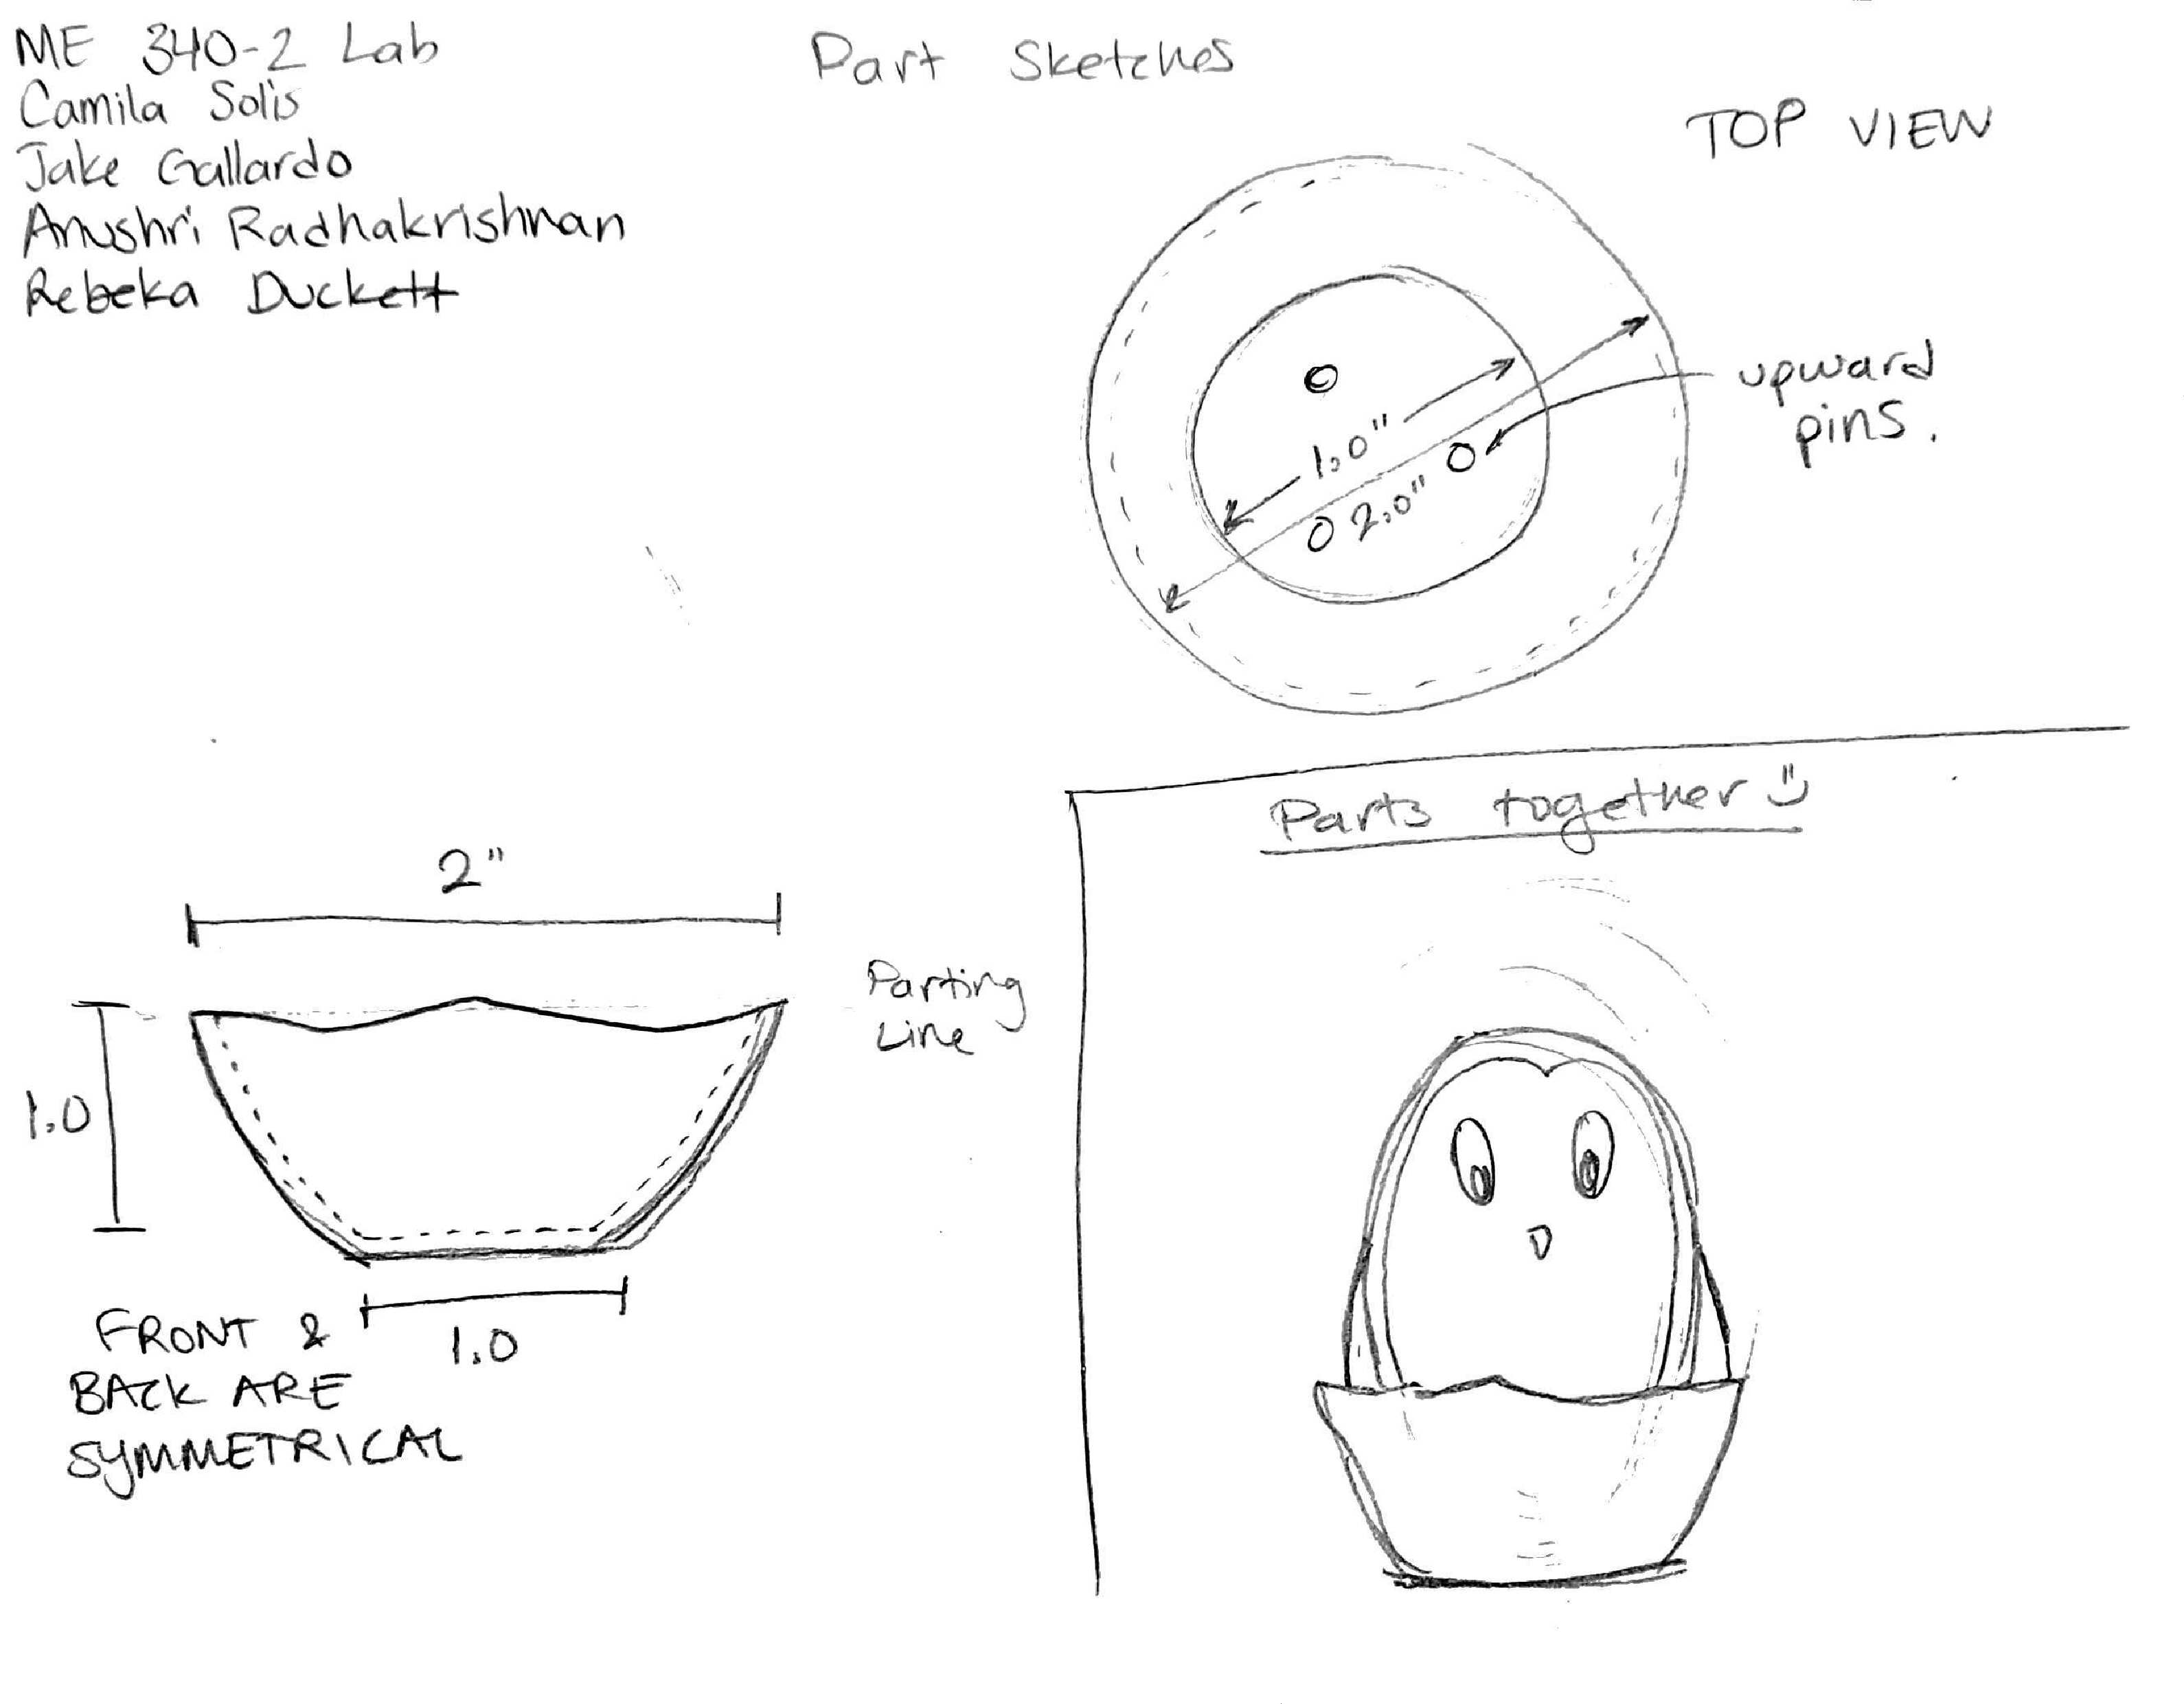 ME 340-2 Lab
Camila Solis
Jake Gallardo
Anushri Radhakrishnan
Rebeka Duckett
Part Sketches
TOP VIEW
1.0"
2.0"
upward
pins.
2"
Parting
Line
1.0
1.0
FRONT &
BACK ARE
SYMMETRICAL
Parts together